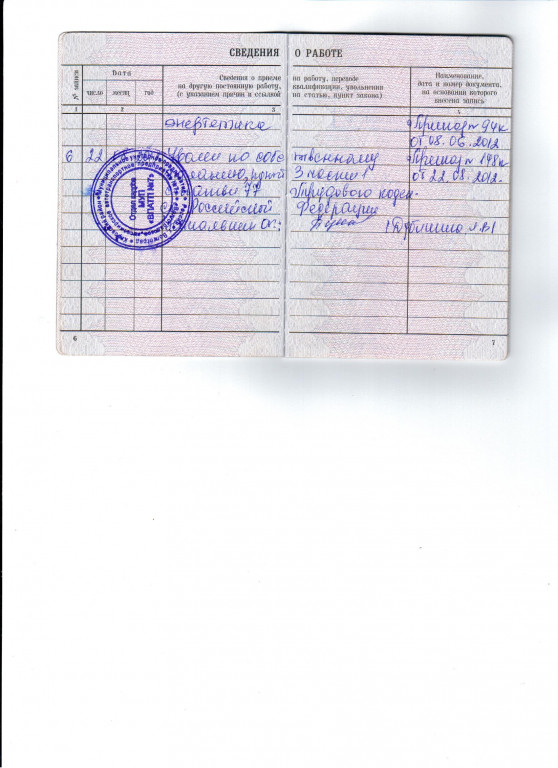 СВЕДЕНИЯ О РАБОТЕ
№ записи
Дата
число
месяц
год
Сведения о приеме
на другую постоянную работу,
(с указанием причин и ссылкой
на работу, переводе
квалификации, увольнении
на статью, пункт закона)
Наименование,
дата и номер документа,
на основании которого
внесена запись
1 2 3 4
энергетика
Приказ 94к
от 08.06.2012
6 22 Уволен по собс твенному Приказ 198к
желанию, пункт 3 части 1 от 22.08.2012.
статьи 77 Трудового кодек-
Российской Федерации
Отдел кадров
МУП
«ВПАТП №7»
6
7